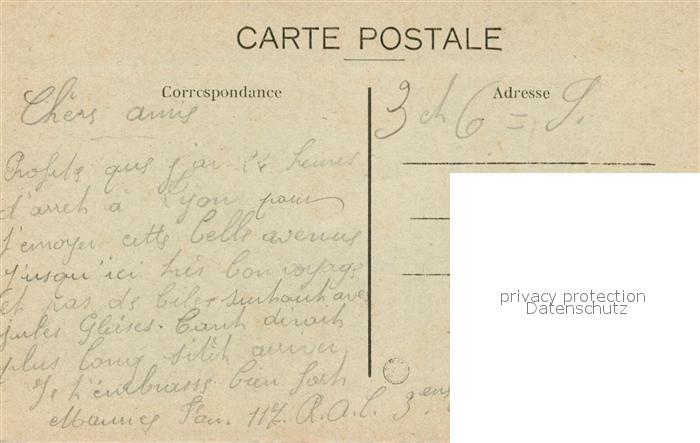 CARTE POSTALE
Correspondance
Adresse
Chers amis
3 ch 6 = S.
Profite que j'ai 24 heures
d'arret à Lyon pour
t'envoyer cette belle avenue
Jusqu'ici très bon voyage
et pas de biles surtout avec
jules Gleises. Tant dirait
plus long sitôt arriver
Je t'embrasse bien fort
Maurice 117. R.A.L. 3
privacy protection
Datenschutz